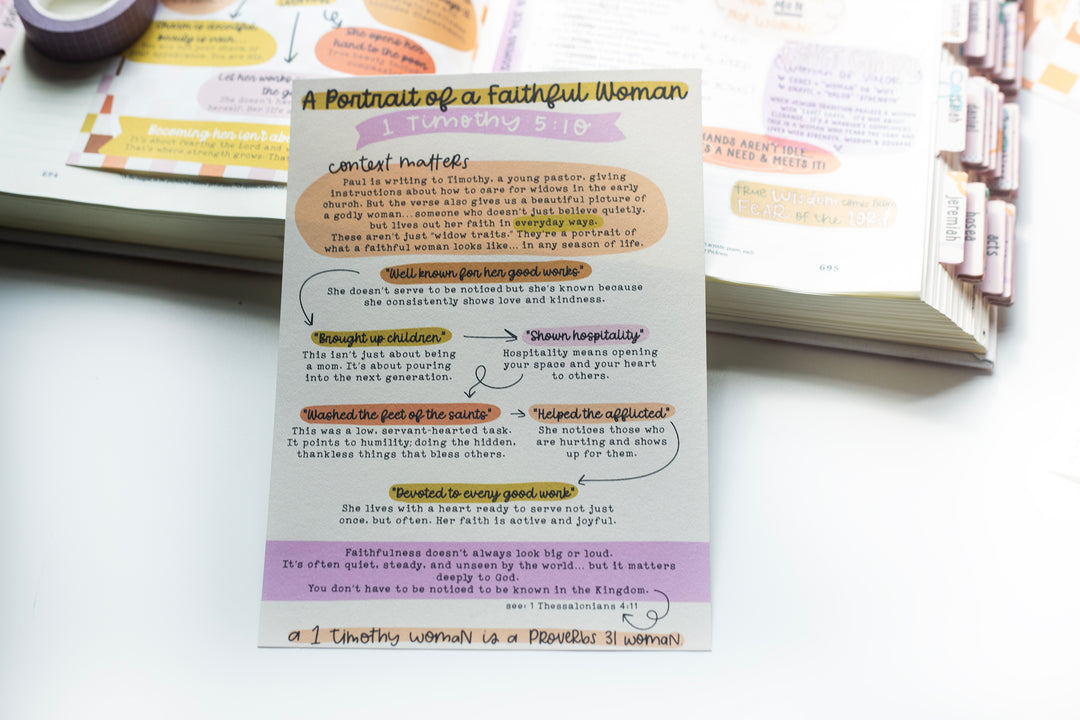 A Portrait of a Faithful Woman
1 Timothy 5:10
context matters
Paul is writing to Timothy, a young pastor, giving
instructions about how to care for widows in the early
church. But the verse also gives us a beautiful picture of
a godly woman... someone who doesn't just believe quietly,
but lives out her faith in everyday ways.
These aren't just "widow traits." They're a portrait of
what a faithful woman looks like... in any season of life.
"Well known for her good works."
She doesn't serve to be noticed but she's known because
she consistently shows love and kindness.
"Brought up children"
This isn't just about being
a mom. It's about pouring
into the next generation.
"Shown hospitality"
Hospitality means opening
your space and your heart
to others.
"Washed the feet of the saints"
This was a low, servant-hearted task.
It points to humility; doing the hidden,
thankless things that bless others.
"Helped the afflicted."
She notices those who
are hurting and shows
up for them.
"Devoted to every good work"
She lives with a heart ready to serve not just
once, but often. Her faith is active and joyful.
Faithfulness doesn't always look big or loud.
It's often quiet, steady, and unseen by the world... but it matters
deeply to God.
You don't have to be noticed to be known in the Kingdom.
see: 1 Thessalonians 4:11
a 1 Timothy woman is a Proverbs 31 woman
Charm is deceitful,
beauty is vain...
She opens her
hand to the poor
Let her works
the ga
She doesn't
herself. Her life
Becoming her isn't ab
It's about fearing the Lord and
That's where strength grows.
694
Woman of Valor
HANDS AREN'T IDLE
A NEED & MEETS IT!
True Wisdom comes from
FEAR of the LORD!
695
daniel
jeremiah
hosea
acts